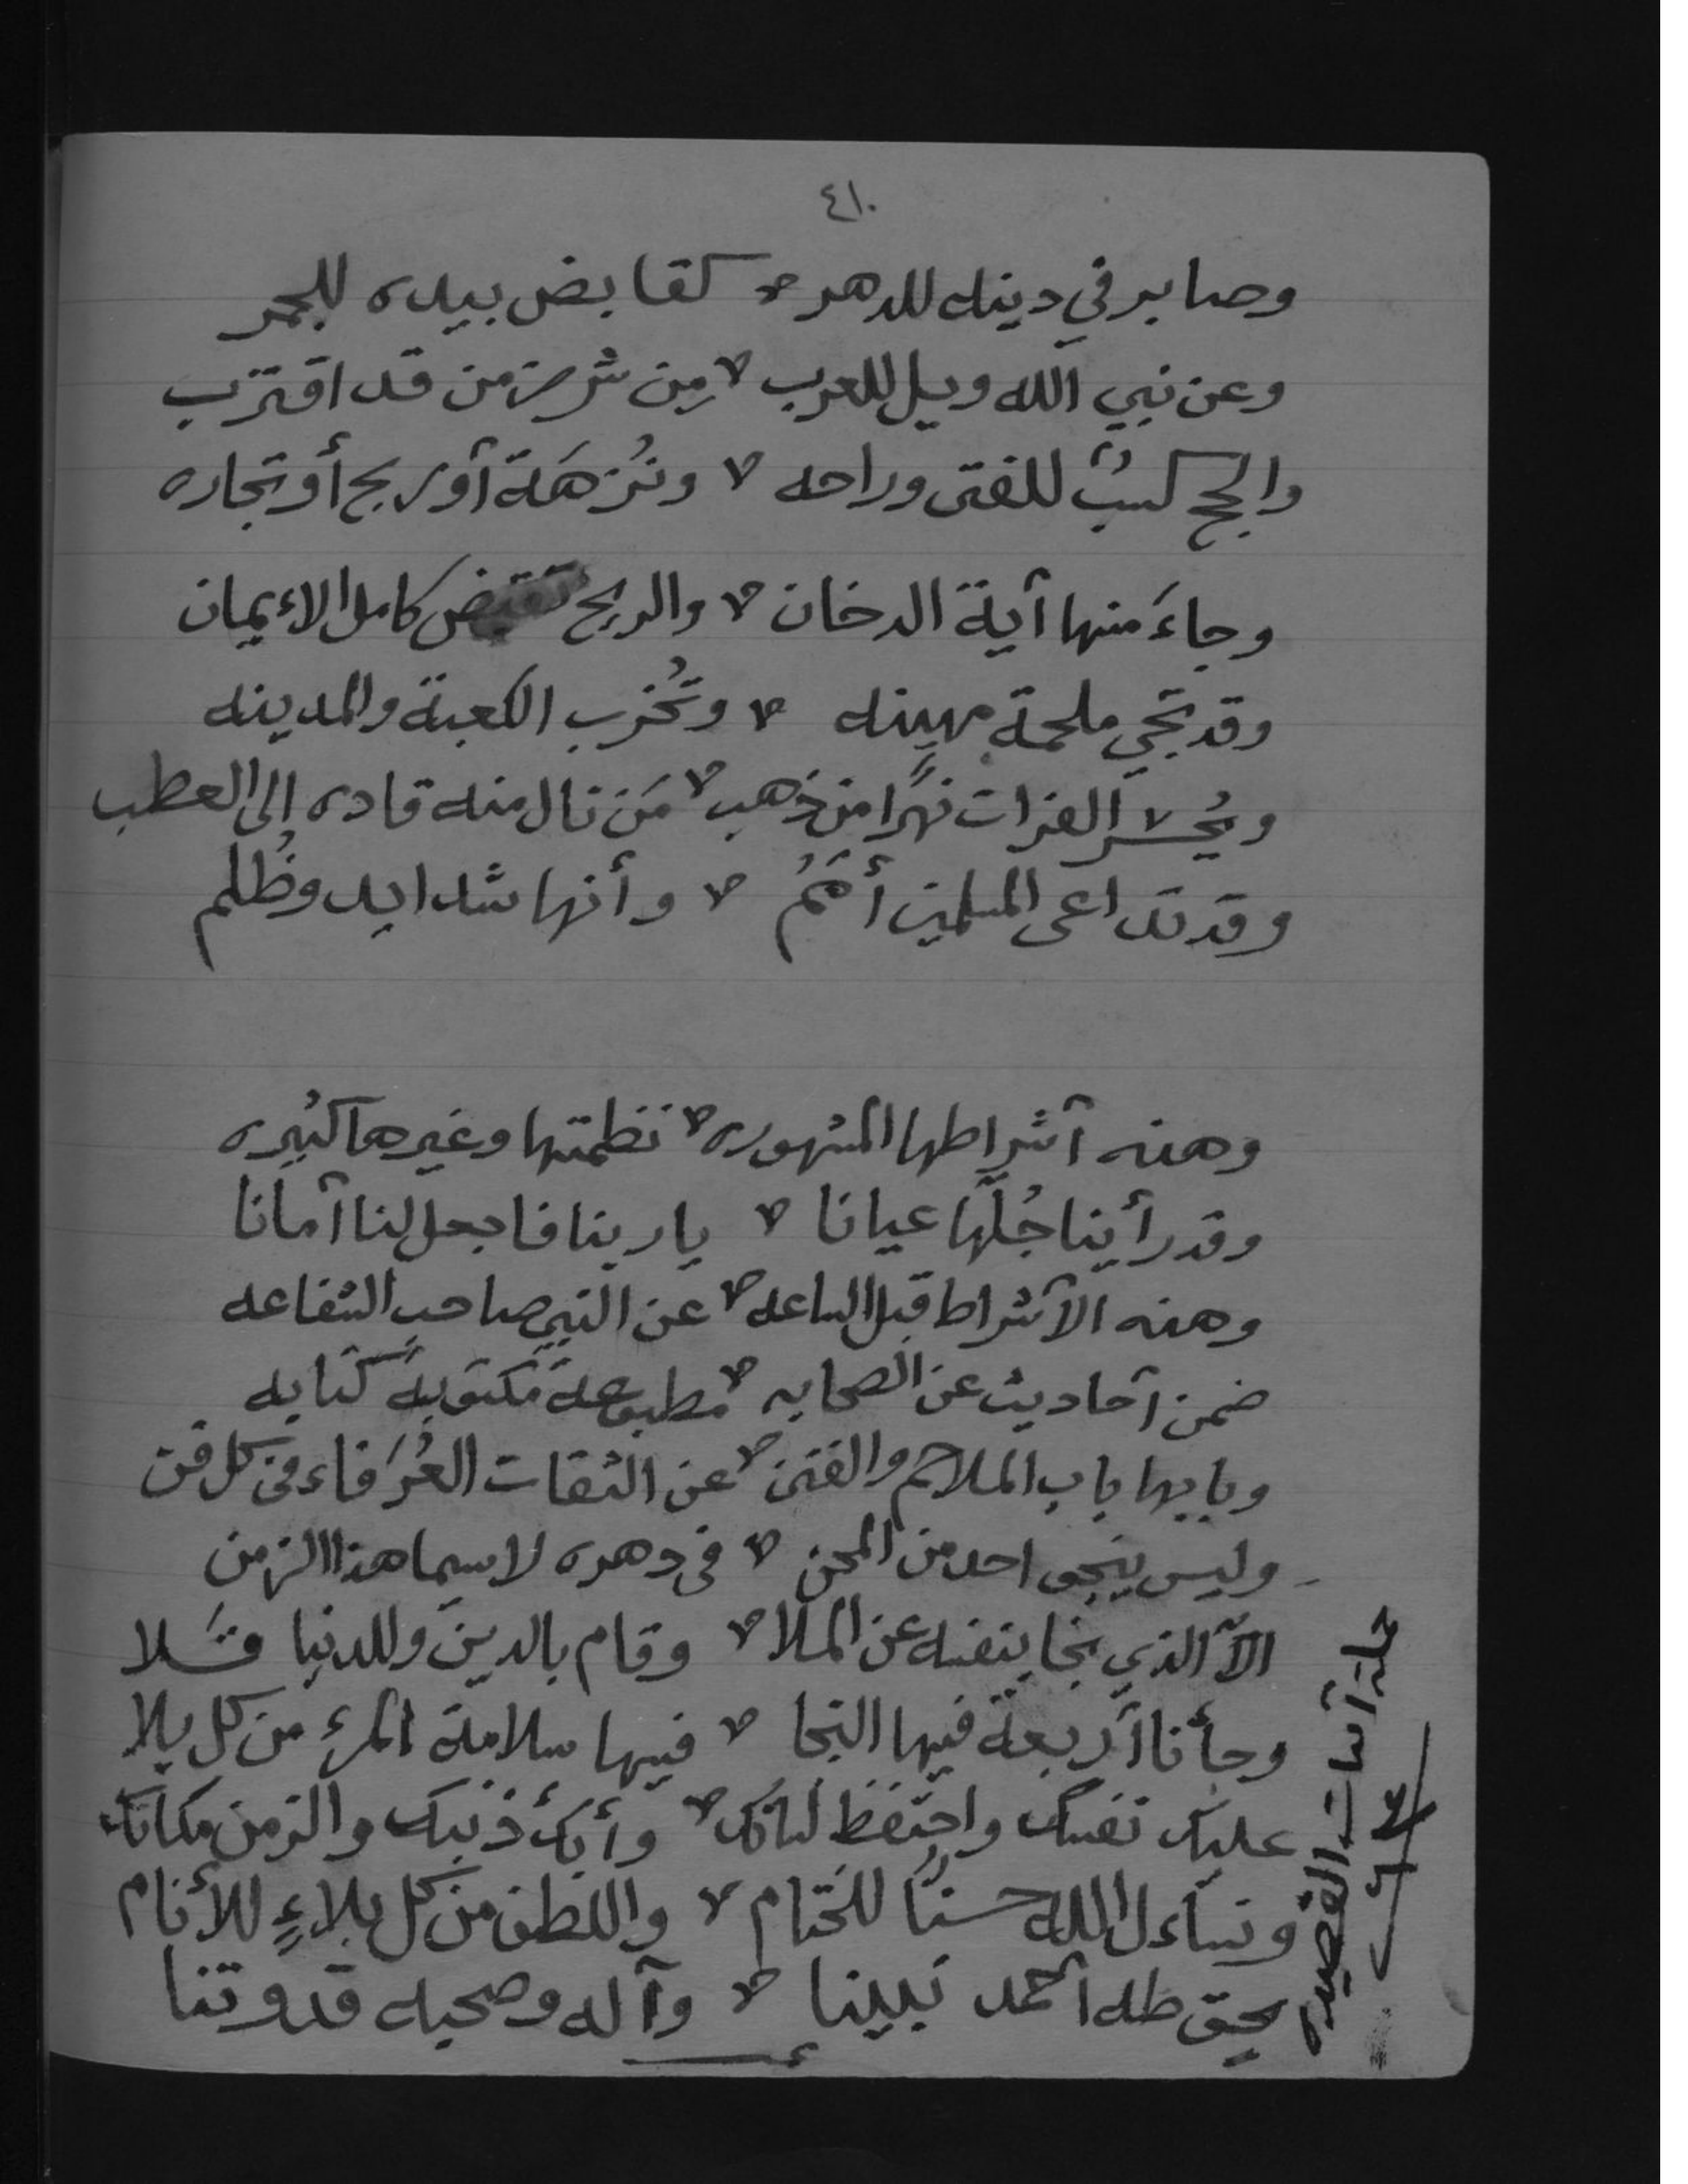 ٤١٠
وصابر في دينه للدهر * كقابض بيده للجمر
وعن نبي الله ويل للعرب * مِن شر زمن قد اقترب
والحج كسبٌ للفتى وراحه * ونُزهَة أو ربح أو تجاره
وجاءَ منها آية الدخان * والريح تقبض كامل الاءيمان
وقد تجي ملحمة مهينه * وتُخرب الكعبة والمدينه
ويُحسر الفرات نهرًا من ذهب * مَن نال منه قاده الى العطب
وقد تداعى المسلمين أُمَمُ * وأنها شدايد وظُلم
وهذه أشراطها المشهوره * نظمتها وغيرها كثيره
وقد رأينا جُلّها عيانا * يا ربنا فاجعل لنا أمانا
وهذه الأشراط قبل الساعه * عن النبي صاحب الشفاعه
ضمن أحاديث عن الصحابه * مطبوعةً مكتوبةً كتابه
وبابها باب الملاحم والفتن * عن الثقات العُرَفاء في كل فن
وليس ينجى احد من المحن * في دهره لاسيما هذا الزمن
الاّ الذي نجا بنفسه عن الملا * وقام بالدين وللدنيا قَلا
وجأنا أربعة فيها النجا * فيها سلامة المرء من كل بلا
عليك نفسك واحتفظ لسانك * وأبكِ ذنبك والزمن مكانك
ونساءل الله حسنًا للختام * واللطف من كل بلاءٍ للأنام
بحق طه أحمد نبينا * وآله وصحبه قدوتنا
جملة أبيات القصيده